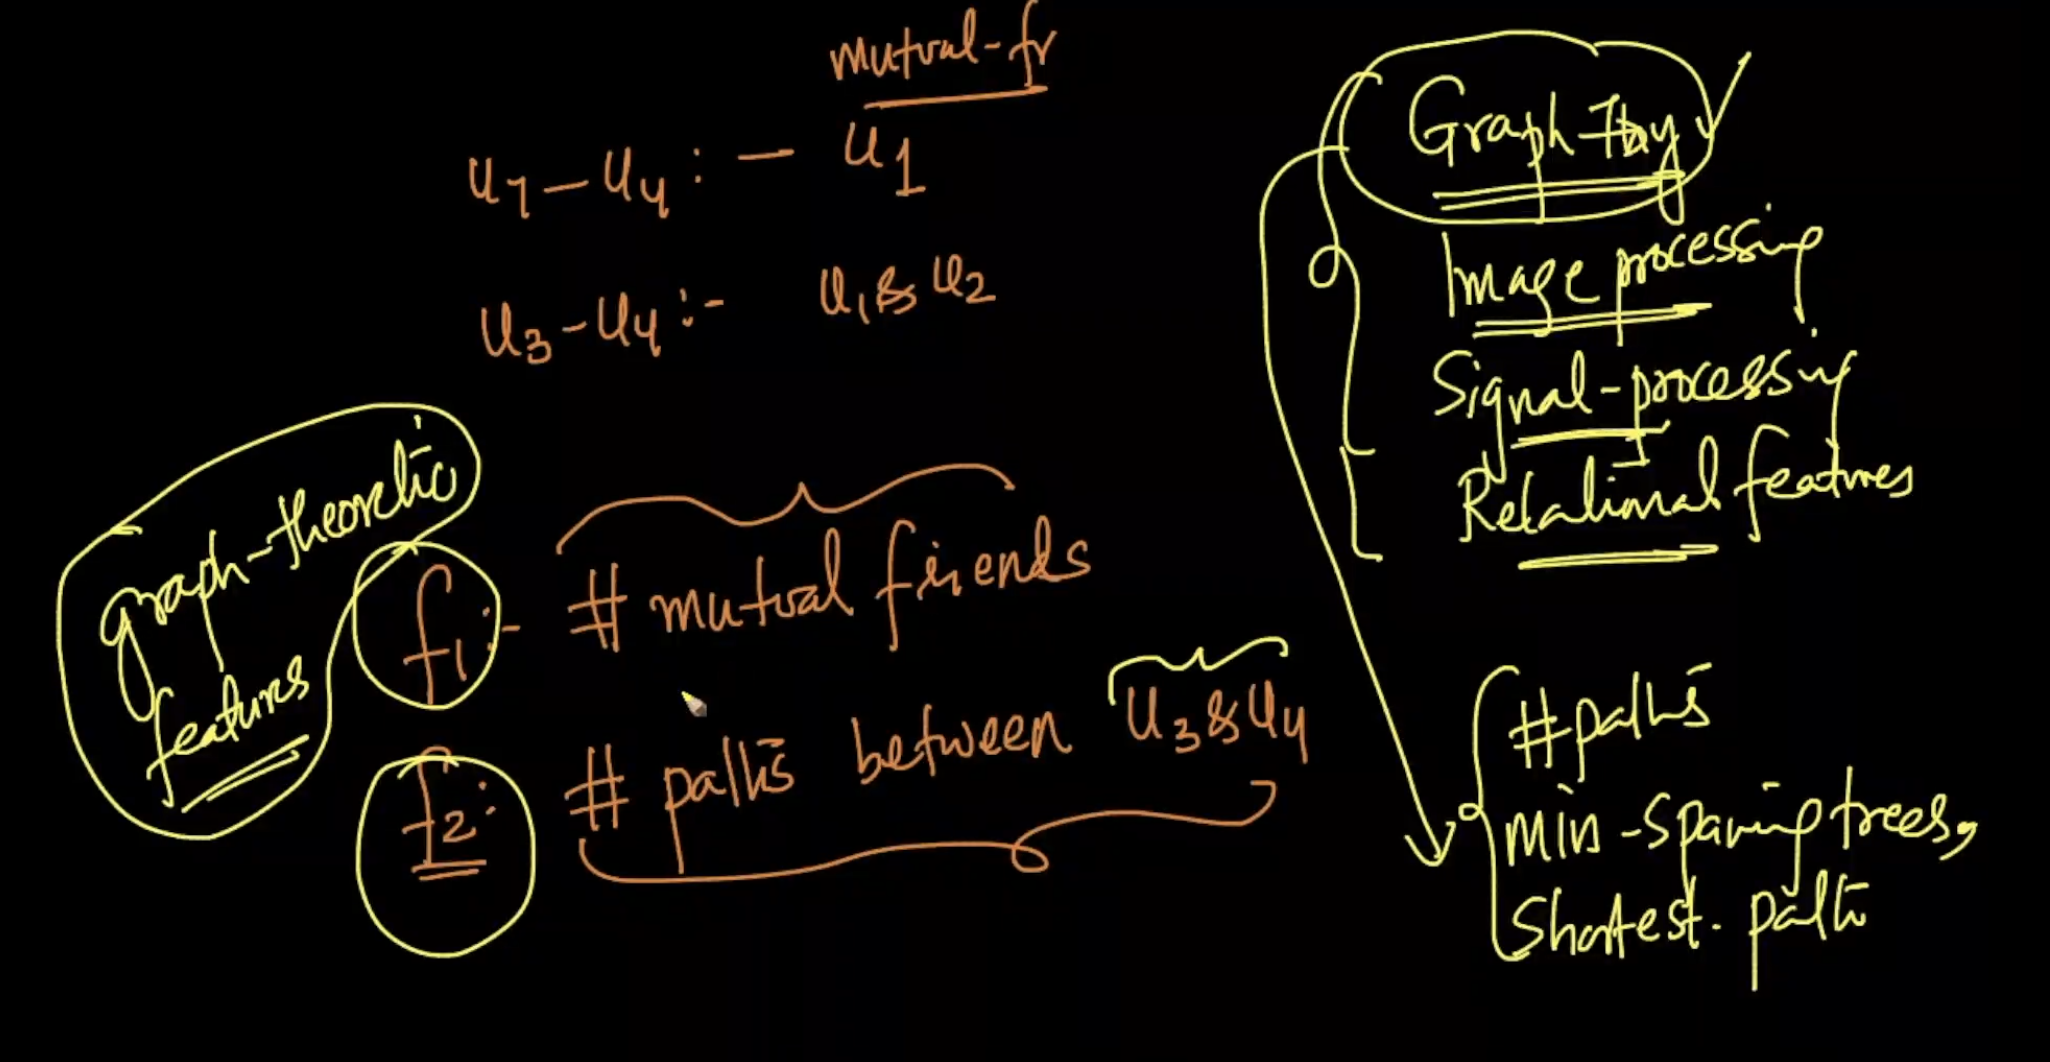 mutual-fr
u7-u4: - u1
u3-u4:- u1 & u2
graph-theoretic
features
f1:- # mutual friends
f2: # paths between u3 & u4
Graph-Thy
Image processing
Signal-processing
Relational features
# paths
min-spaning trees,
Shortest. path